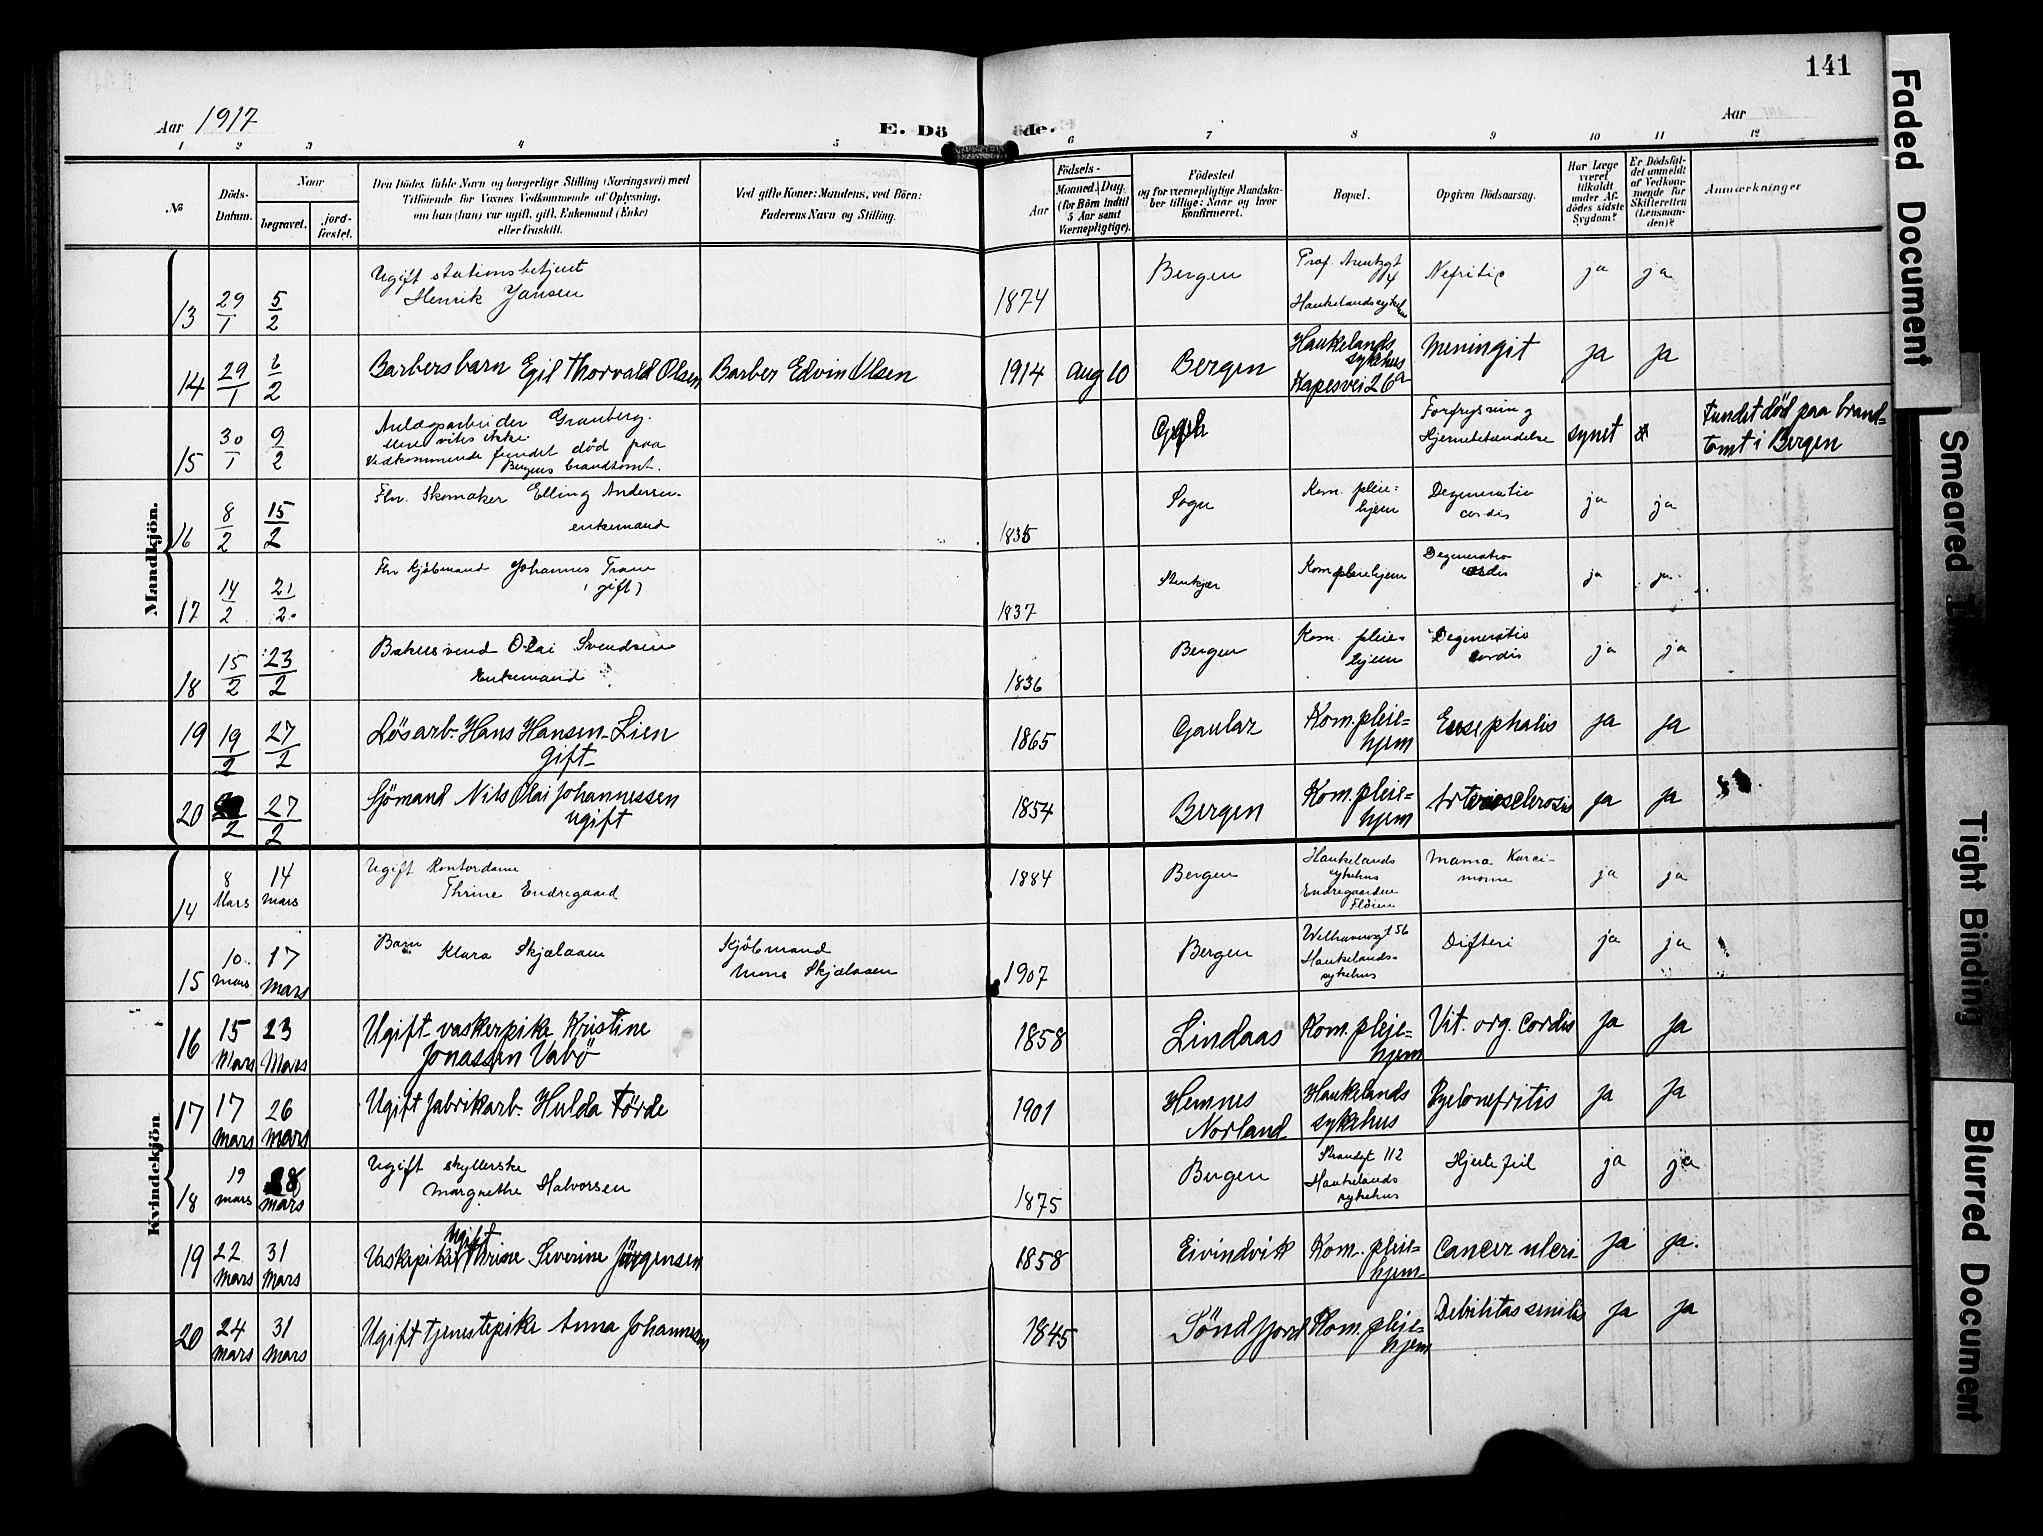 141
Aar 1917
E. Dö
de.
Aar
1 2 3 4 5 6 7 8 9 10 11 12
№
Döds-
Datum.
Naar
begravet.
jord-
fæstet.
Den Dödes fulde Navn og borgerlige Stilling (Næringsvei) med
Tilföiende for Voxnes Vedkommende af Oplysning,
om han (hun) var ugift, gift, Enkemand (Enke)
eller fraskilt.
Ved gifte Koner: Mandens, ved Börn:
Faderens Navn og Stilling.
Aar
Födsels-
Maaned. Dag.
(for Börn indtil
5 Aar samt
Værnepligtige).
Födested
og for værnepligtige Mandska-
ber tillige: Naar og hvor
konfirmeret.
Bopæl.
Opgiven Dödsaarsag.
Har Læge
været
tilkaldt
under Af-
dödes sidste
Sygdom?
Er Dödsfal-
det anmeldt
af Vedkom-
mende for
Skifteretten
(Lensman-
den)?
Anmærkninger
Mandkjön.
13 29/1 5/2 Ugift stationsbetjent
Henrik Jansen
1874 Bergen
Haukelandssykehus
Nefritis ja ja
14 29/1 6/2 Barbersbarn Egil Thorvald Olsen Barber Edvin Olsen 1914 Aug 10 Bergen Haukelands
sykehus
26a
Meningit ja ja
15 30/1 9/2 Anlægsarbeider Granberg.
Mere vites ikke.
Vedkommende fundet død paa
Bergens brandtomt.
Forfrysning
Hjernebetændelse synet
Fundet død paa brand-
tomt i Bergen
16 8/2 15/2 Fhv. Skomaker Elling Andersen.
enkemand
1835 Sogn Kom. pleie-
hjem
Degeneratio
cordis
ja ja
17 14/2 21/2 Fhv Kjøbmand Johannes
(gift)
1837 Stenkjær Kom pleiehjem Degeneratio
cordis
ja ja
18 15/2 23/2 Bakersvend Olai Svendsen
Enkemand
1836 Bergen Kom. pleie-
hjem
Degeneratio
cordis
ja ja
19 19/2 27/2 Løsarb. Hans Hansen-Lien
gift
1865 Gaular Kom. pleie=
hjem
Ensephalis ja ja
20 27/2 Sjömand Nils Olai Johannessen
ugift
1854 Bergen Kom. pleie=
hjem
Arteriosclerosis ja ja
Kvindekjön
14 8 Mars 14 Mars Ugift Kontordame
Thrine Endregaard
1884 Bergen Haukelands
sykehus
Endregaarden
Fløien
Mama Karci-
mome
ja ja
15 10 mars 17 mars Barn Klara Skjelaaen Kjøbmand
Mons Skjelaaen
1907 Bergen Welhavensgt 56
Haukelands-
sykehus
Difteri ja ja
16 15 Mars 23 Mars Ugift vaskerpike Kristine
Jonassen Vabö
1858 Lindaas Kom. pleje-
hjem
Vit. org. cordis ja ja
17 17 mars 26 mars Ugift fabrikarb. Hulda Förde 1901 Hemnes
Norland
Haukelands
sykehus
Pyelonefritis ja ja
18 19 mars 28 mars Ugift skyllerske
Margrethe Halvorsen
1875 Bergen Strandgt 112
Haukelands
sykehus
Hjertefeil ja ja
19 22 Mars 31 Mars ugift
Vaskepike Thrine Severine Jörgensen 1858 Eivindvik Kom. pleie=
hjem
Cancer ulceri ja ja.
20 24 mars 31 Mars Ugift tjenestepike Anna Johannesen 1845 Söndfjord Kom. pleje=
hjem
Debilitas senilis ja ja
Faded Document
Smeared
Tight Binding
Blurred Document